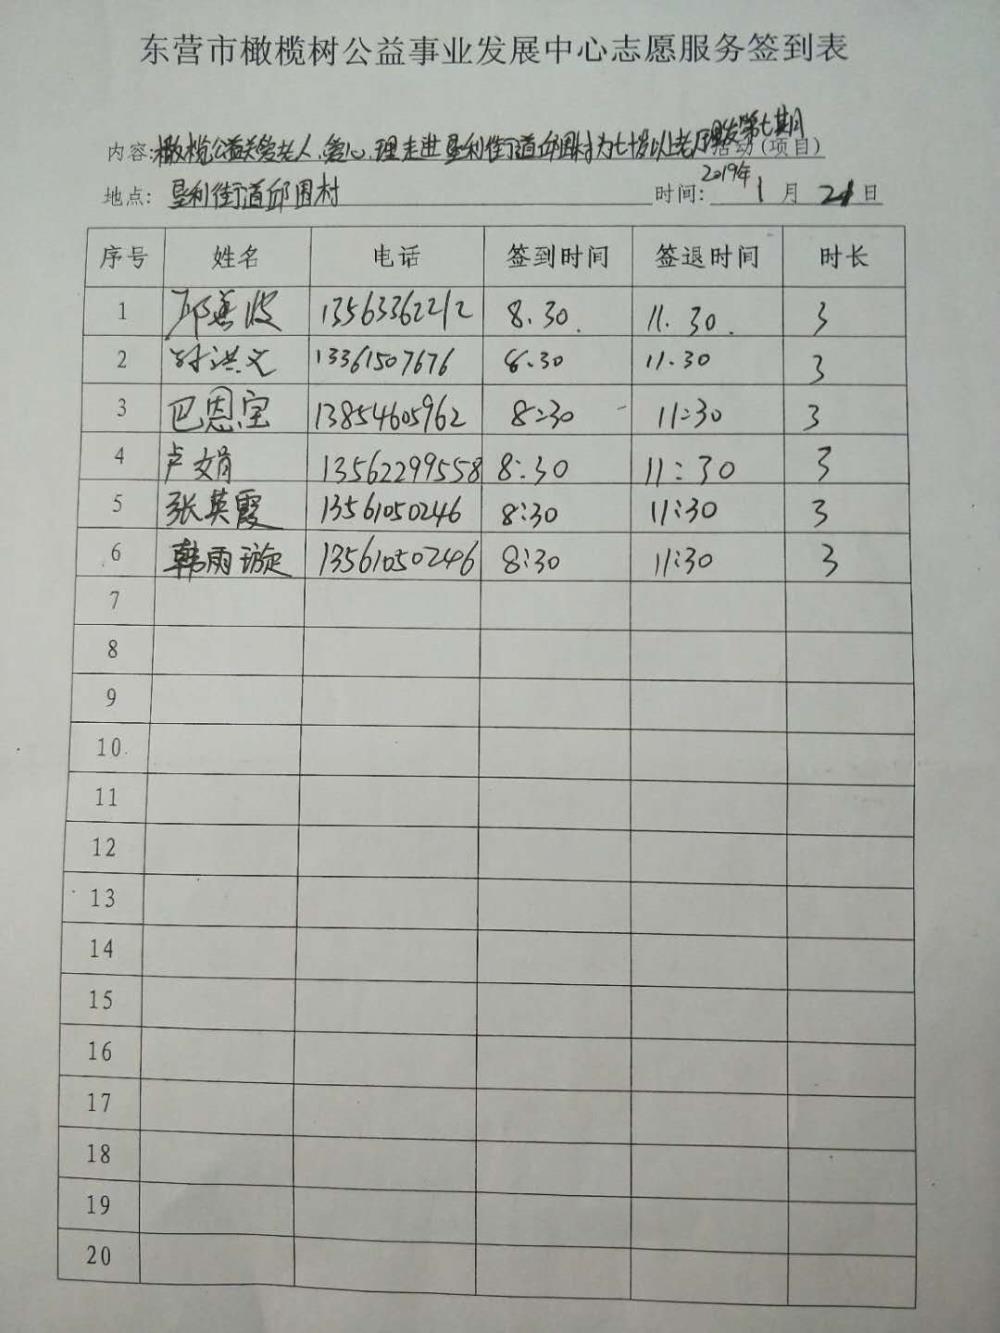 东营市橄榄树公益事业发展中心志愿服务签到表
内容:橄榄公益关爱老人、爱心理走进垦利街道邱围村为七十岁以上老人理发第七期活动(项目)
地点:垦利街道邱围村 时间:2019年1月21日
序号 姓名 电话 签到时间 签退时间 时长
1 邱善波 13563362212 8.30. 11.30. 3
2 孙洪文 13361507676 8.30 11.30 3
3 巴恩宝 13854605962 8:30 11:30 3
4 卢文娟 13562299558 8:30 11:30 3
5 张英霞 13561050246 8:30 11:30 3
6 韩雨璇 13561050246 8:30 11:30 3
7
8
9
10
11
12
13
14
15
16
17
18
19
20